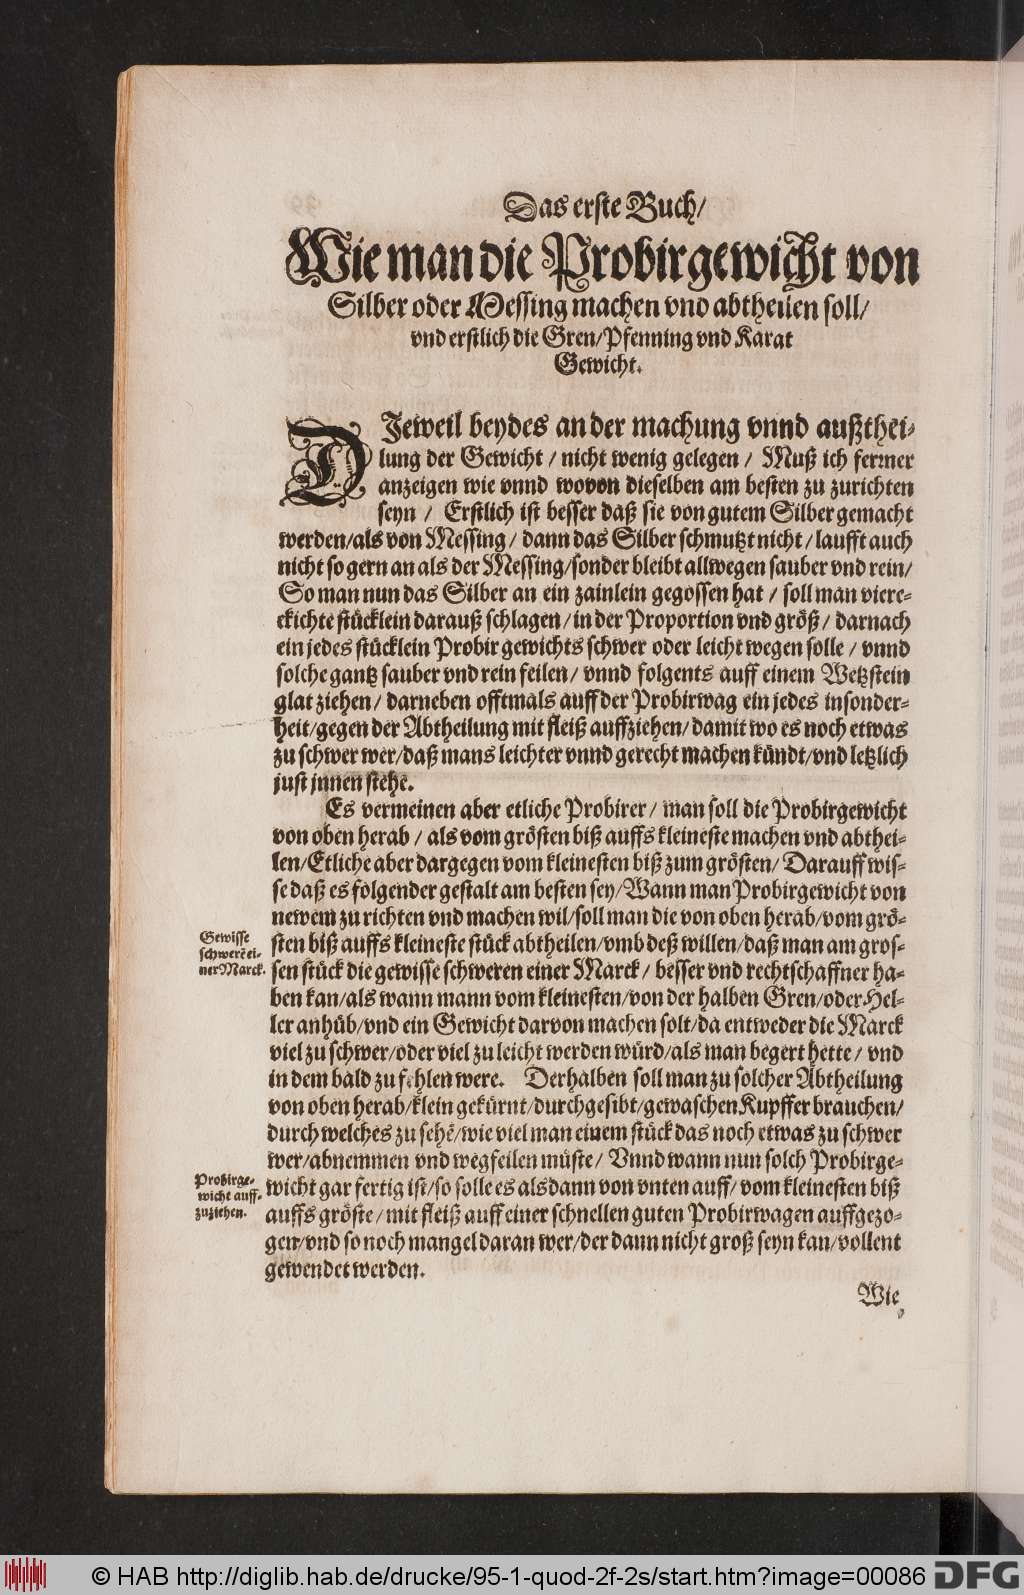 Das erste Buch/
Wie man die Probirgewicht von
Silber oder Messing machen vnd abtheilen soll/
vnd erstlich die Gren/Pfenning vnd Karat
Gewicht.
DJeweil beydes an der machung vnnd außthei-
lung der Gewicht / nicht wenig gelegen / Muß ich ferrner
anzeigen wie vnnd wovon dieselben am besten zu zurichten
seyn / Erstlich ist besser daß sie von gutem Silber gemacht
werden/als von Messing / dann das Silber schmutzt nicht / laufft auch
nicht so gern an als der Messing/sonder bleibt allwegen sauber vnd rein/
So man nun das Silber an ein zainlein gegossen hat / soll man viere-
ckichte stücklein darauß schlagen / in der Proportion vnd größ / darnach
ein jedes stücklein Probirgewichts schwer oder leicht wegen solle / vnnd
solche gantz sauber vnd rein feilen / vnnd folgents auff einem Wetzstein
glat ziehen / darneben offtmals auff der Probirwag ein jedes insonder-
heit/gegen der Abtheilung mit fleiß auffziehen/ damit wo es noch etwas
zu schwer wer/daß mans leichter vnnd gerecht machen kündt/vnd letzlich
just jnnen stehe.
Es vermeinen aber etliche Probirer / man soll die Probirgewicht
von oben herab / als vom grösten biß auffs kleineste machen vnd abthei-
len/Etliche aber dargegen vom kleinesten biß zum grösten/ Darauff wis-
se daß es folgender gestalt am besten sey/Wann man Probirgewicht von
newem zu richten vnd machen wil/soll man die von oben herab/vom grö-
sten biß auffs kleineste stück abtheilen/vmb deß willen/daß man am gros-
sen stück die gewisse schweren einer Marck / besser vnd rechtschaffner ha-
ben kan/als wann mann vom kleinesten/von der halben Gren/oder Hel-
ler anhüb/vnd ein Gewicht darvon machen solt/da entweder die Marck
viel zu schwer/oder viel zu leicht werden würd/als man begert hette / vnd
in dem bald zu fehlen were. Derhalben soll man zu solcher Abtheilung
von oben herab/klein gekürnt/durchgesibt/gewaschen Kupffer brauchen/
durch welches zu sehē/wie viel man einem stück das noch etwas zu schwer
wer/abnemmen vnd wegfeilen müste/ Vnnd wann nun solch Probirge-
wicht gar fertig ist/so solle es alsdann von vnten auff/ vom kleinesten biß
auffs gröste / mit fleiß auff einer schnellen guten Probirwagen auffgezo-
gen/vnd so noch mangel daran wer/der dann nicht groß seyn kan/vollent
gewendet werden.
Gewisse
schwerē ei-
ner Marck.
Probirge-
wicht auff-
zuziehen.
Wie
© HAB http://diglib.hab.de/drucke/95-1-quod-2f-2s/start.htm?image=00086
DFG